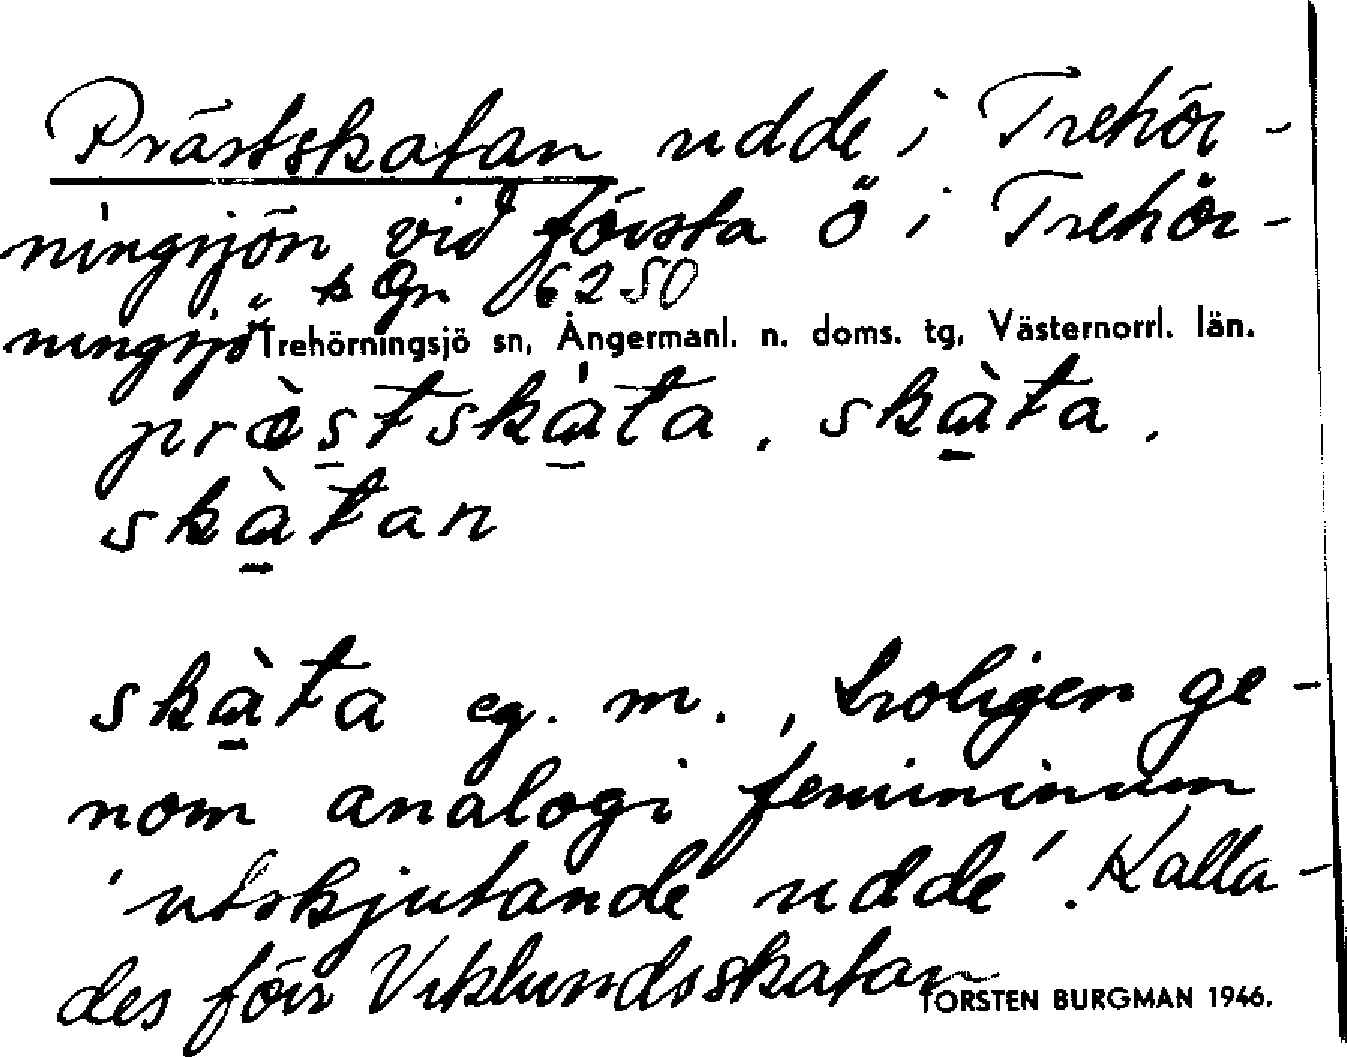 Prästskatan udde i Trehör-
ningsjön vid första ö i Trehör-
k Gr 6250
ningsjö Trehörningsjö sn, Ångermanl. n. doms. tg, Västernorrl. län.
præ̀stska̱̍ta, skà̱ta,
skà̱tan
skà̱ta eg. m., troligen ge-
nom analogi femininum
'utskjutande udde'. Kalla-
des förr Viklundsskatan
TORSTEN BURGMAN 1946.